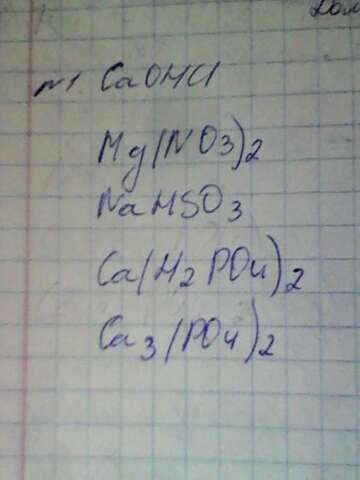 Дом
№1 CaOHCl
Mg(NO3)2
NaHSO3
Ca(H2PO4)2
Ca3(PO4)2